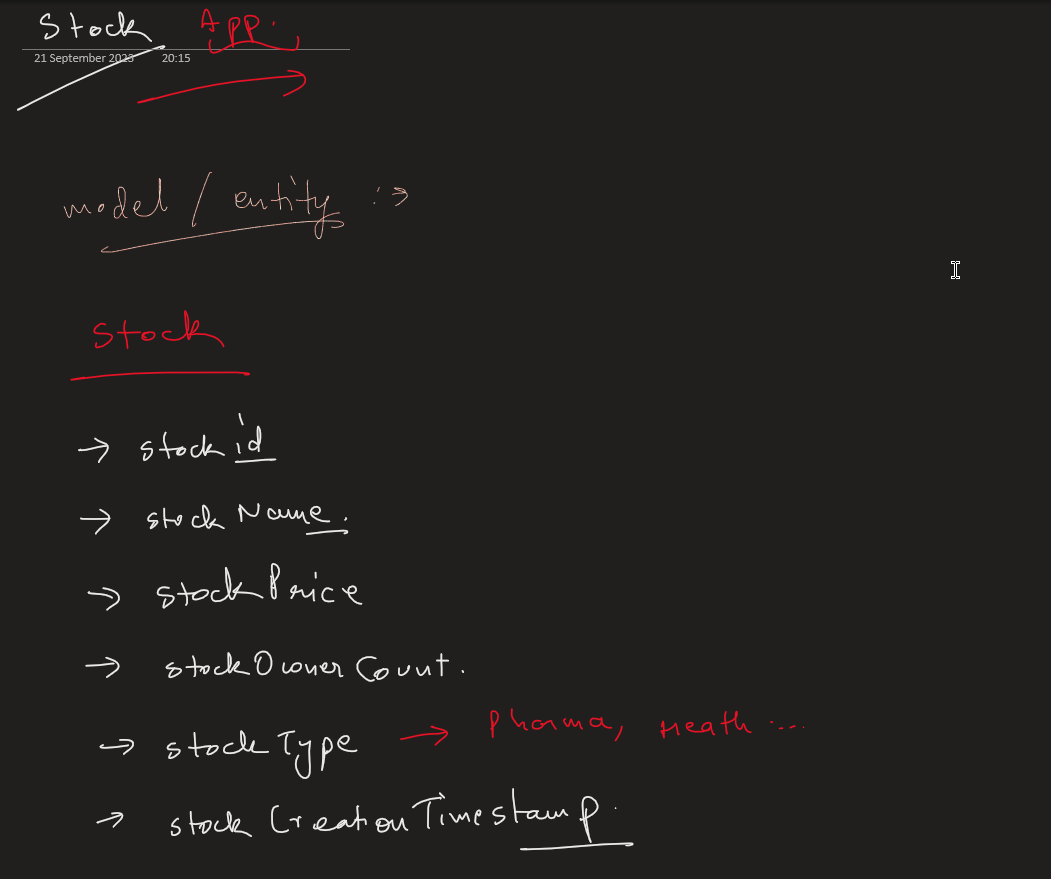 Stock App.
21 September 2023 20:15
model / entity :→
Stock
→ stock id
→ stock Name.
→ stockPrice
→ stockOwnerCount.
→ stockType → Pharma, Heath ...
→ stock CreationTimestamp.